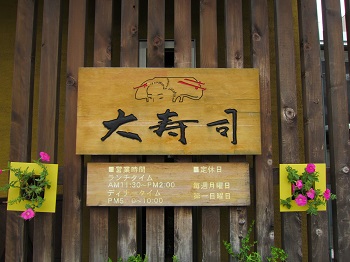 大寿司
■営業時間
ランチタイム
AM11:30~PM2:00
ディナータイム
PM5:
10:00
■定休日
毎週月曜日
第一日曜日